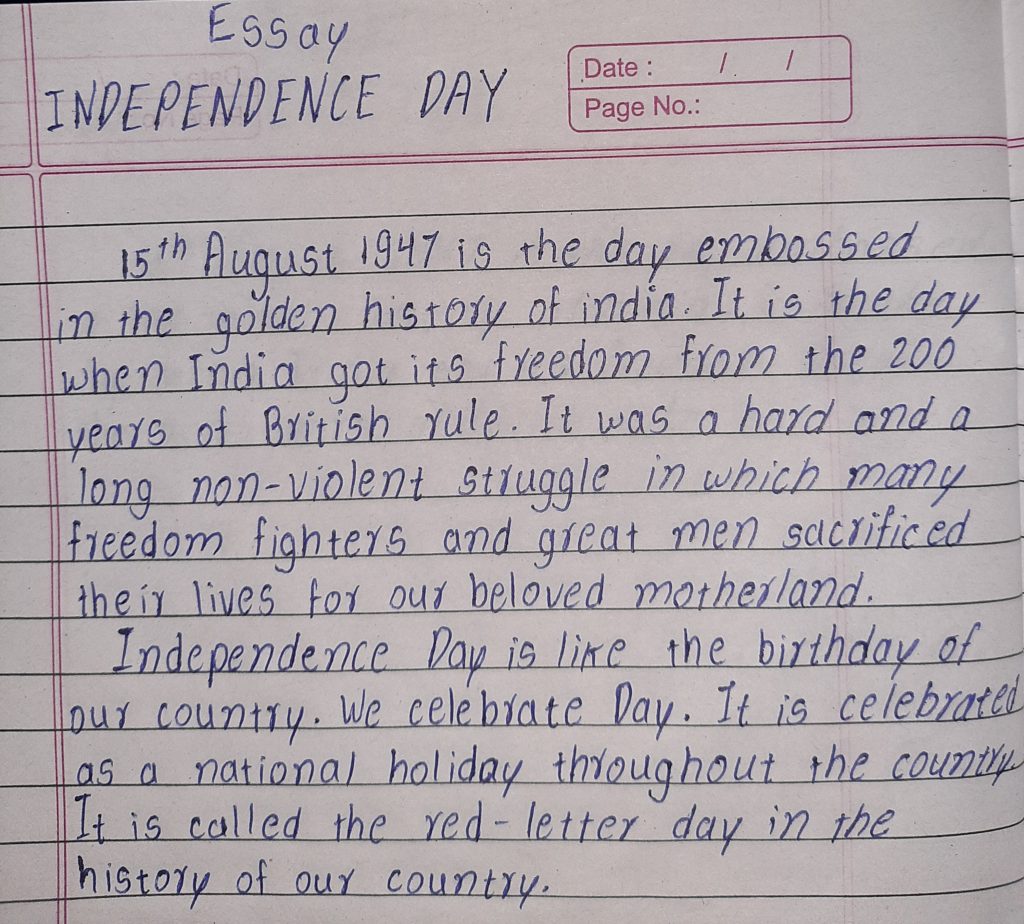 Essay
INDEPENDENCE DAY
Date : / /
Page No.:
15th August 1947 is the day embossed
in the golden history of india. It is the day
when India got its freedom from the 200
years of British rule. It was a hard and a
long non-violent struggle in which many
freedom fighters and great men sacrificed
their lives for our beloved motherland.
Independence Day is like the birthday of
our country. We celebrate Day. It is celebrated
as a national holiday throughout the country
It is called the red-letter day in the
history of our country.